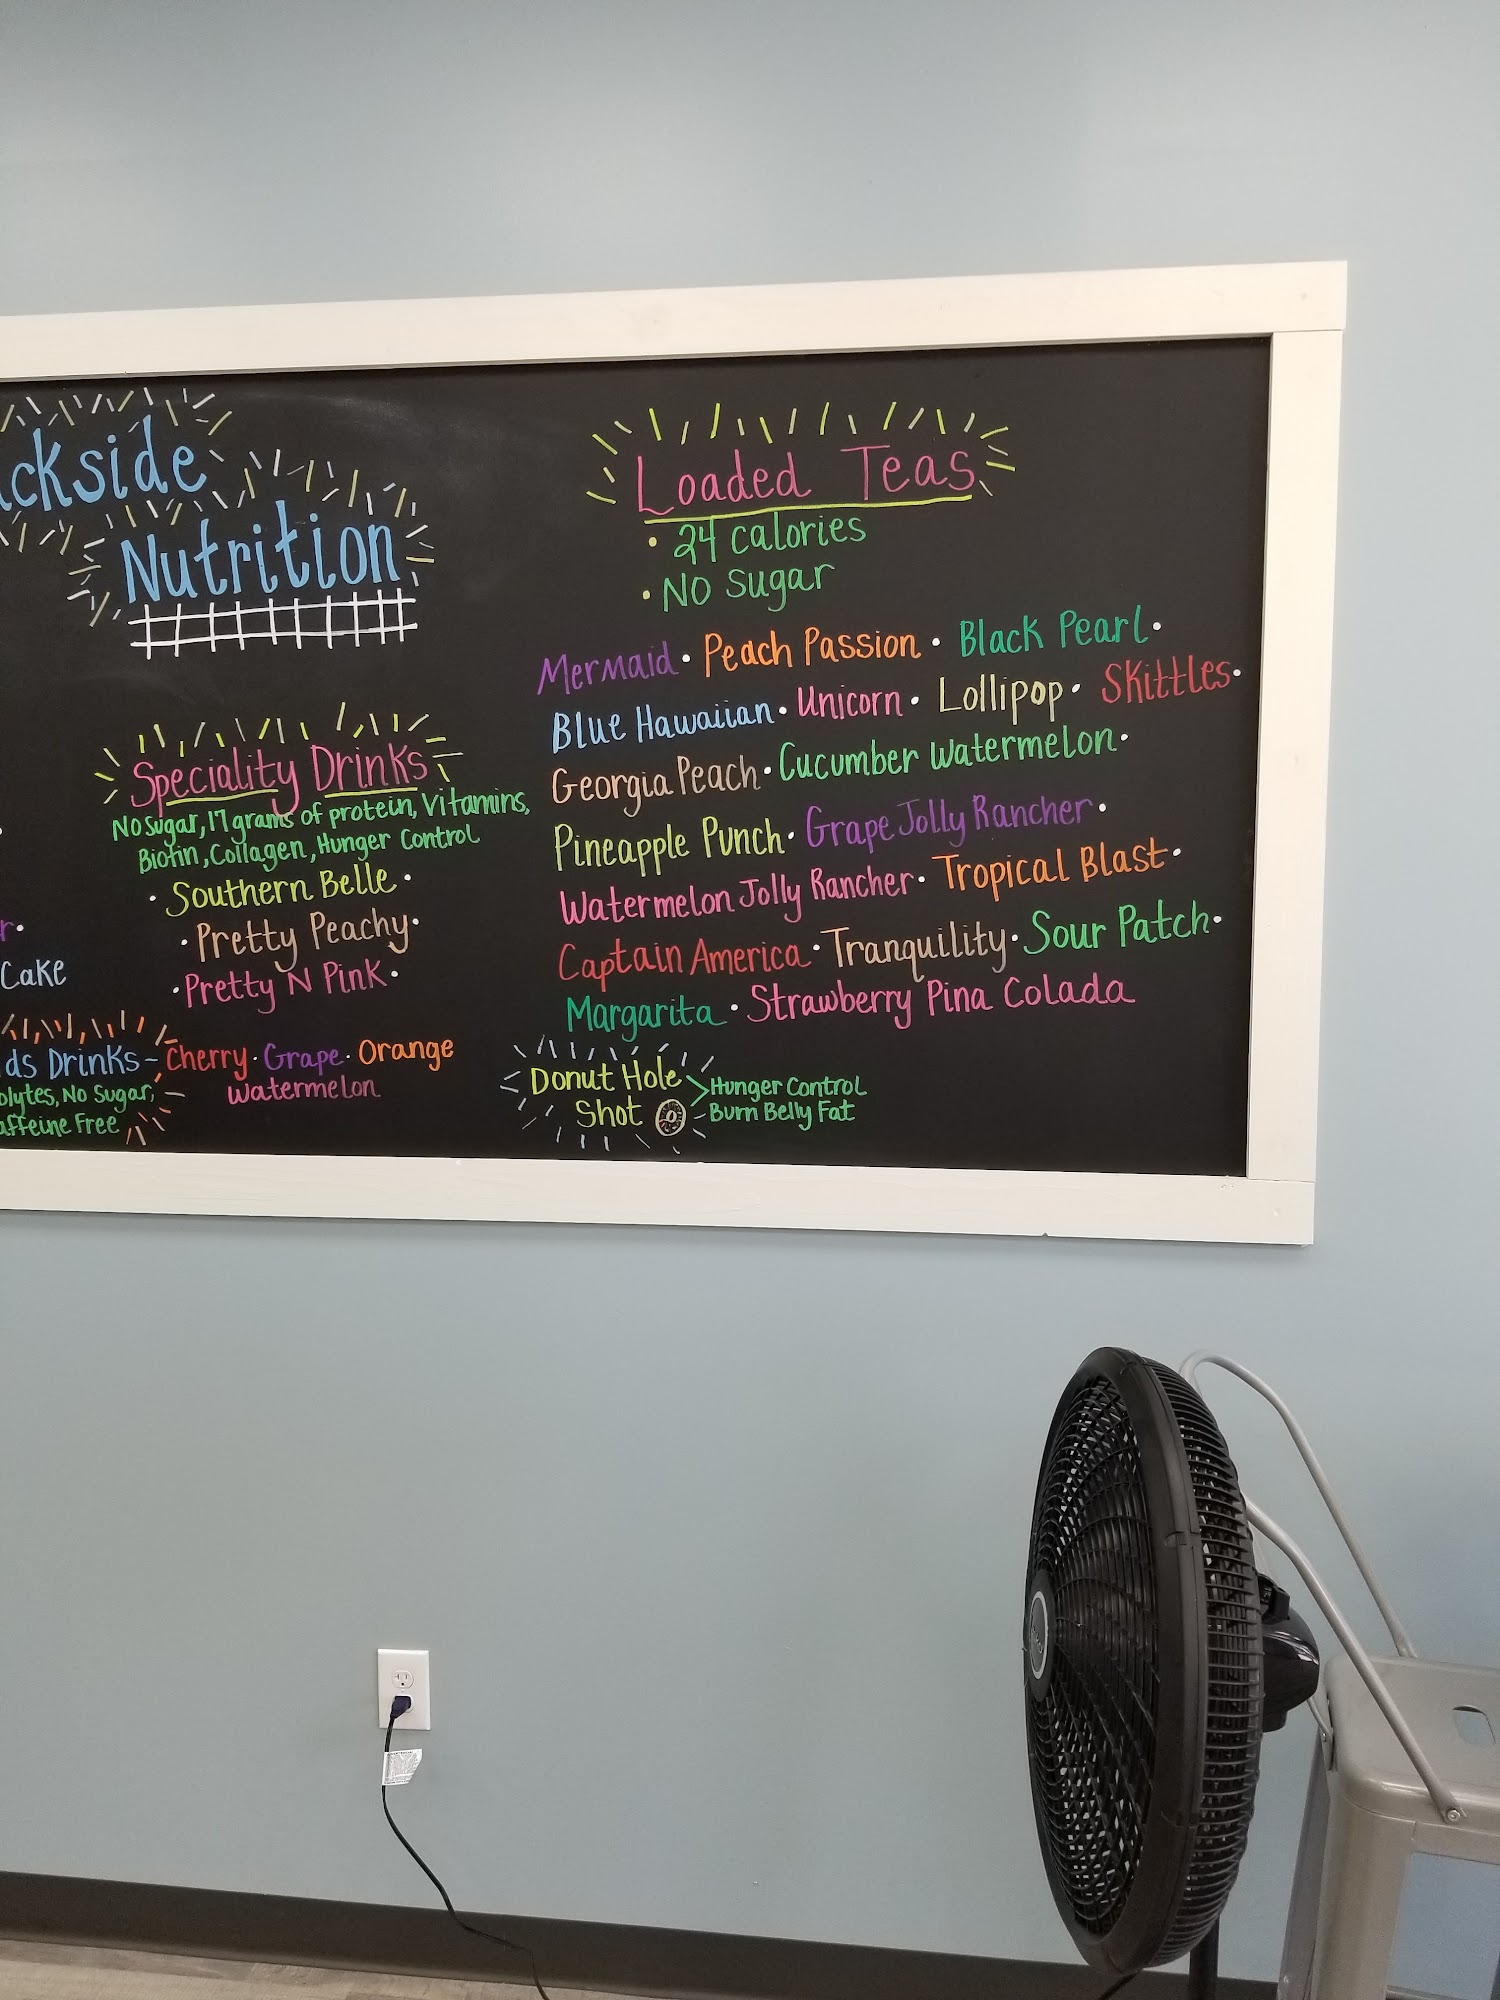 ckside
Nutrition
Speciality Drinks
No Sugar, 17 grams of protein, Vitamins,
Biotin, Collagen, Hunger Control
· Southern Belle ·
· Pretty Peachy ·
· Pretty N Pink ·
r·
Cake
ds Drinks - Cherry · Grape · Orange
Watermelon
olytes, No Sugar,
affeine Free
Loaded Teas
· 24 calories
· No Sugar
Mermaid · Peach Passion · Black Pearl ·
Blue Hawaiian · Unicorn · Lollipop · Skittles ·
Georgia Peach · Cucumber Watermelon ·
Pineapple Punch · Grape Jolly Rancher ·
Watermelon Jolly Rancher · Tropical Blast ·
Captain America · Tranquility · Sour Patch ·
Margarita · Strawberry Pina Colada
Donut Hole
Shot
Hunger Control
Burn Belly Fat